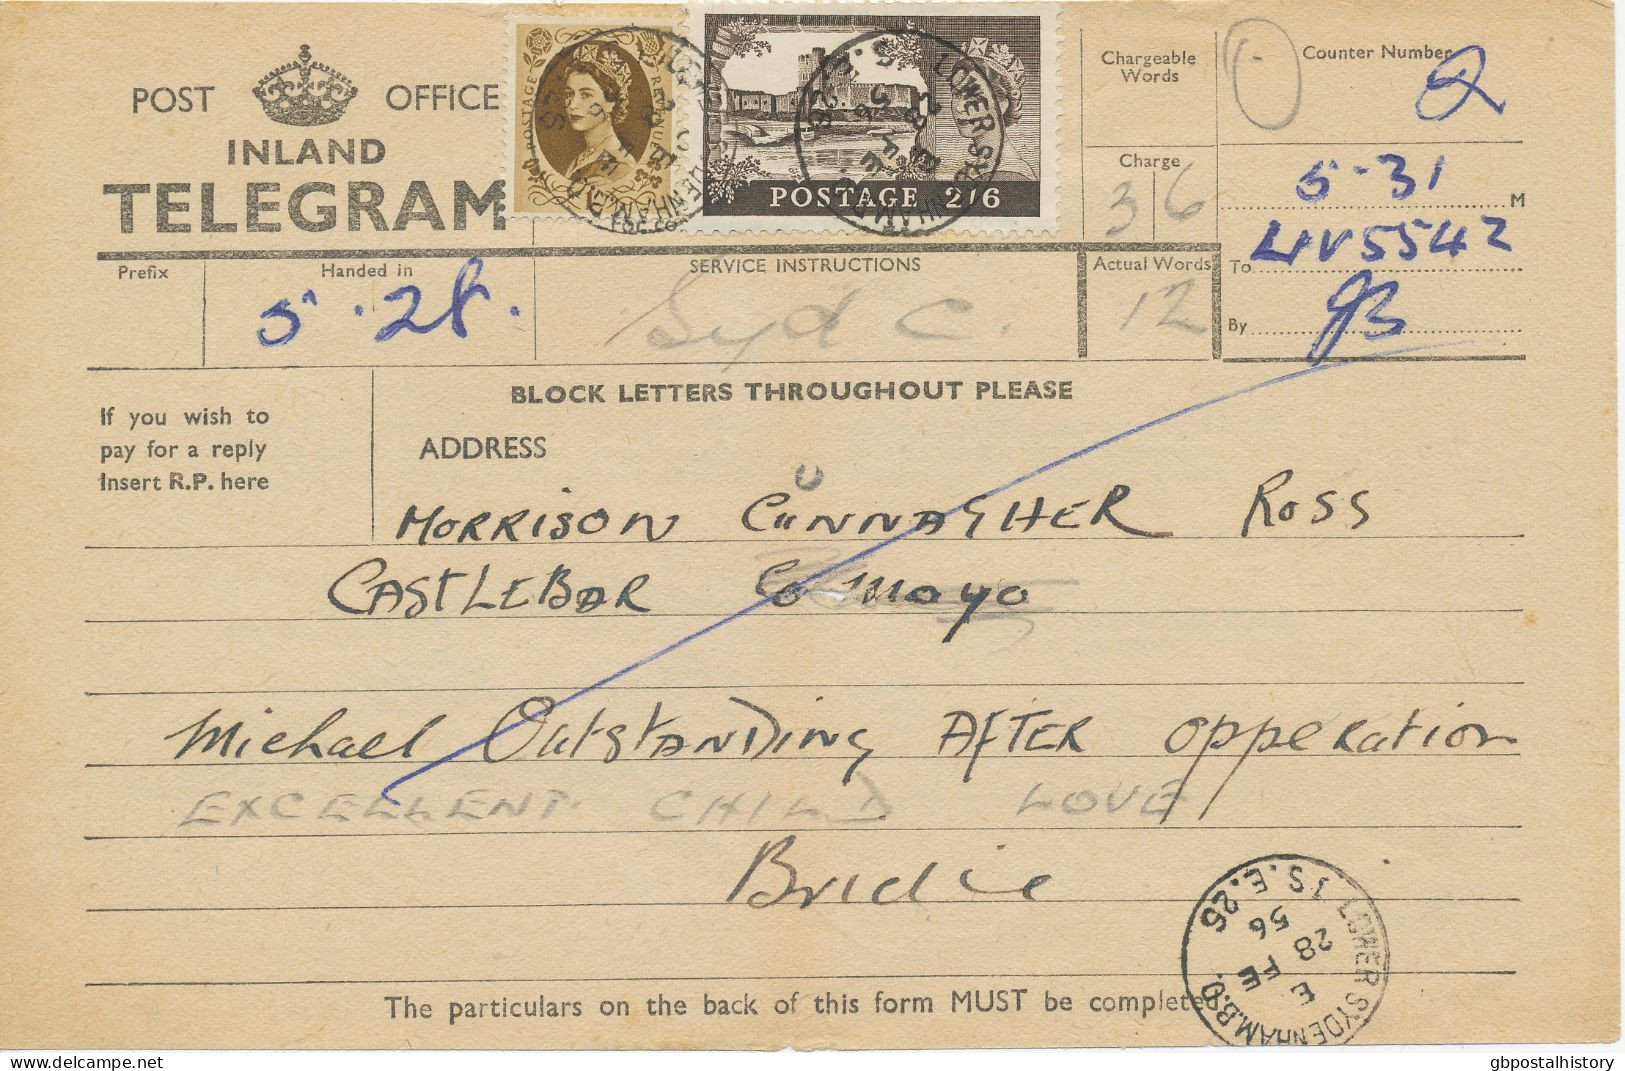 POST OFFICE
INLAND
TELEGRAM
POSTAGE REVENUE
POSTAGE 2/6
LOWER SYDENHAM.B.O. S.E.26
28 FE 56
Chargeable Words
Counter Number
2
Charge
3 6
5.31 M
Prefix
Handed in
5.28.
SERVICE INSTRUCTIONS
Syd C.
Actual Words
12
To LIV 5542
By JB
BLOCK LETTERS THROUGHOUT PLEASE
If you wish to
pay for a reply
Insert R.P. here
ADDRESS
MORRISON CUNNAGHER ROSS
CASTLEBAR Co Mayo
Michael OutstANDing AFTER opperation
EXCELLENT CHILD LOVE
Bridie
The particulars on the back of this form MUST be completed.
LOWER SYDENHAM.B.O. S.E.26
E
28 FE
56
www.delcampe.net
gbpostalhistory